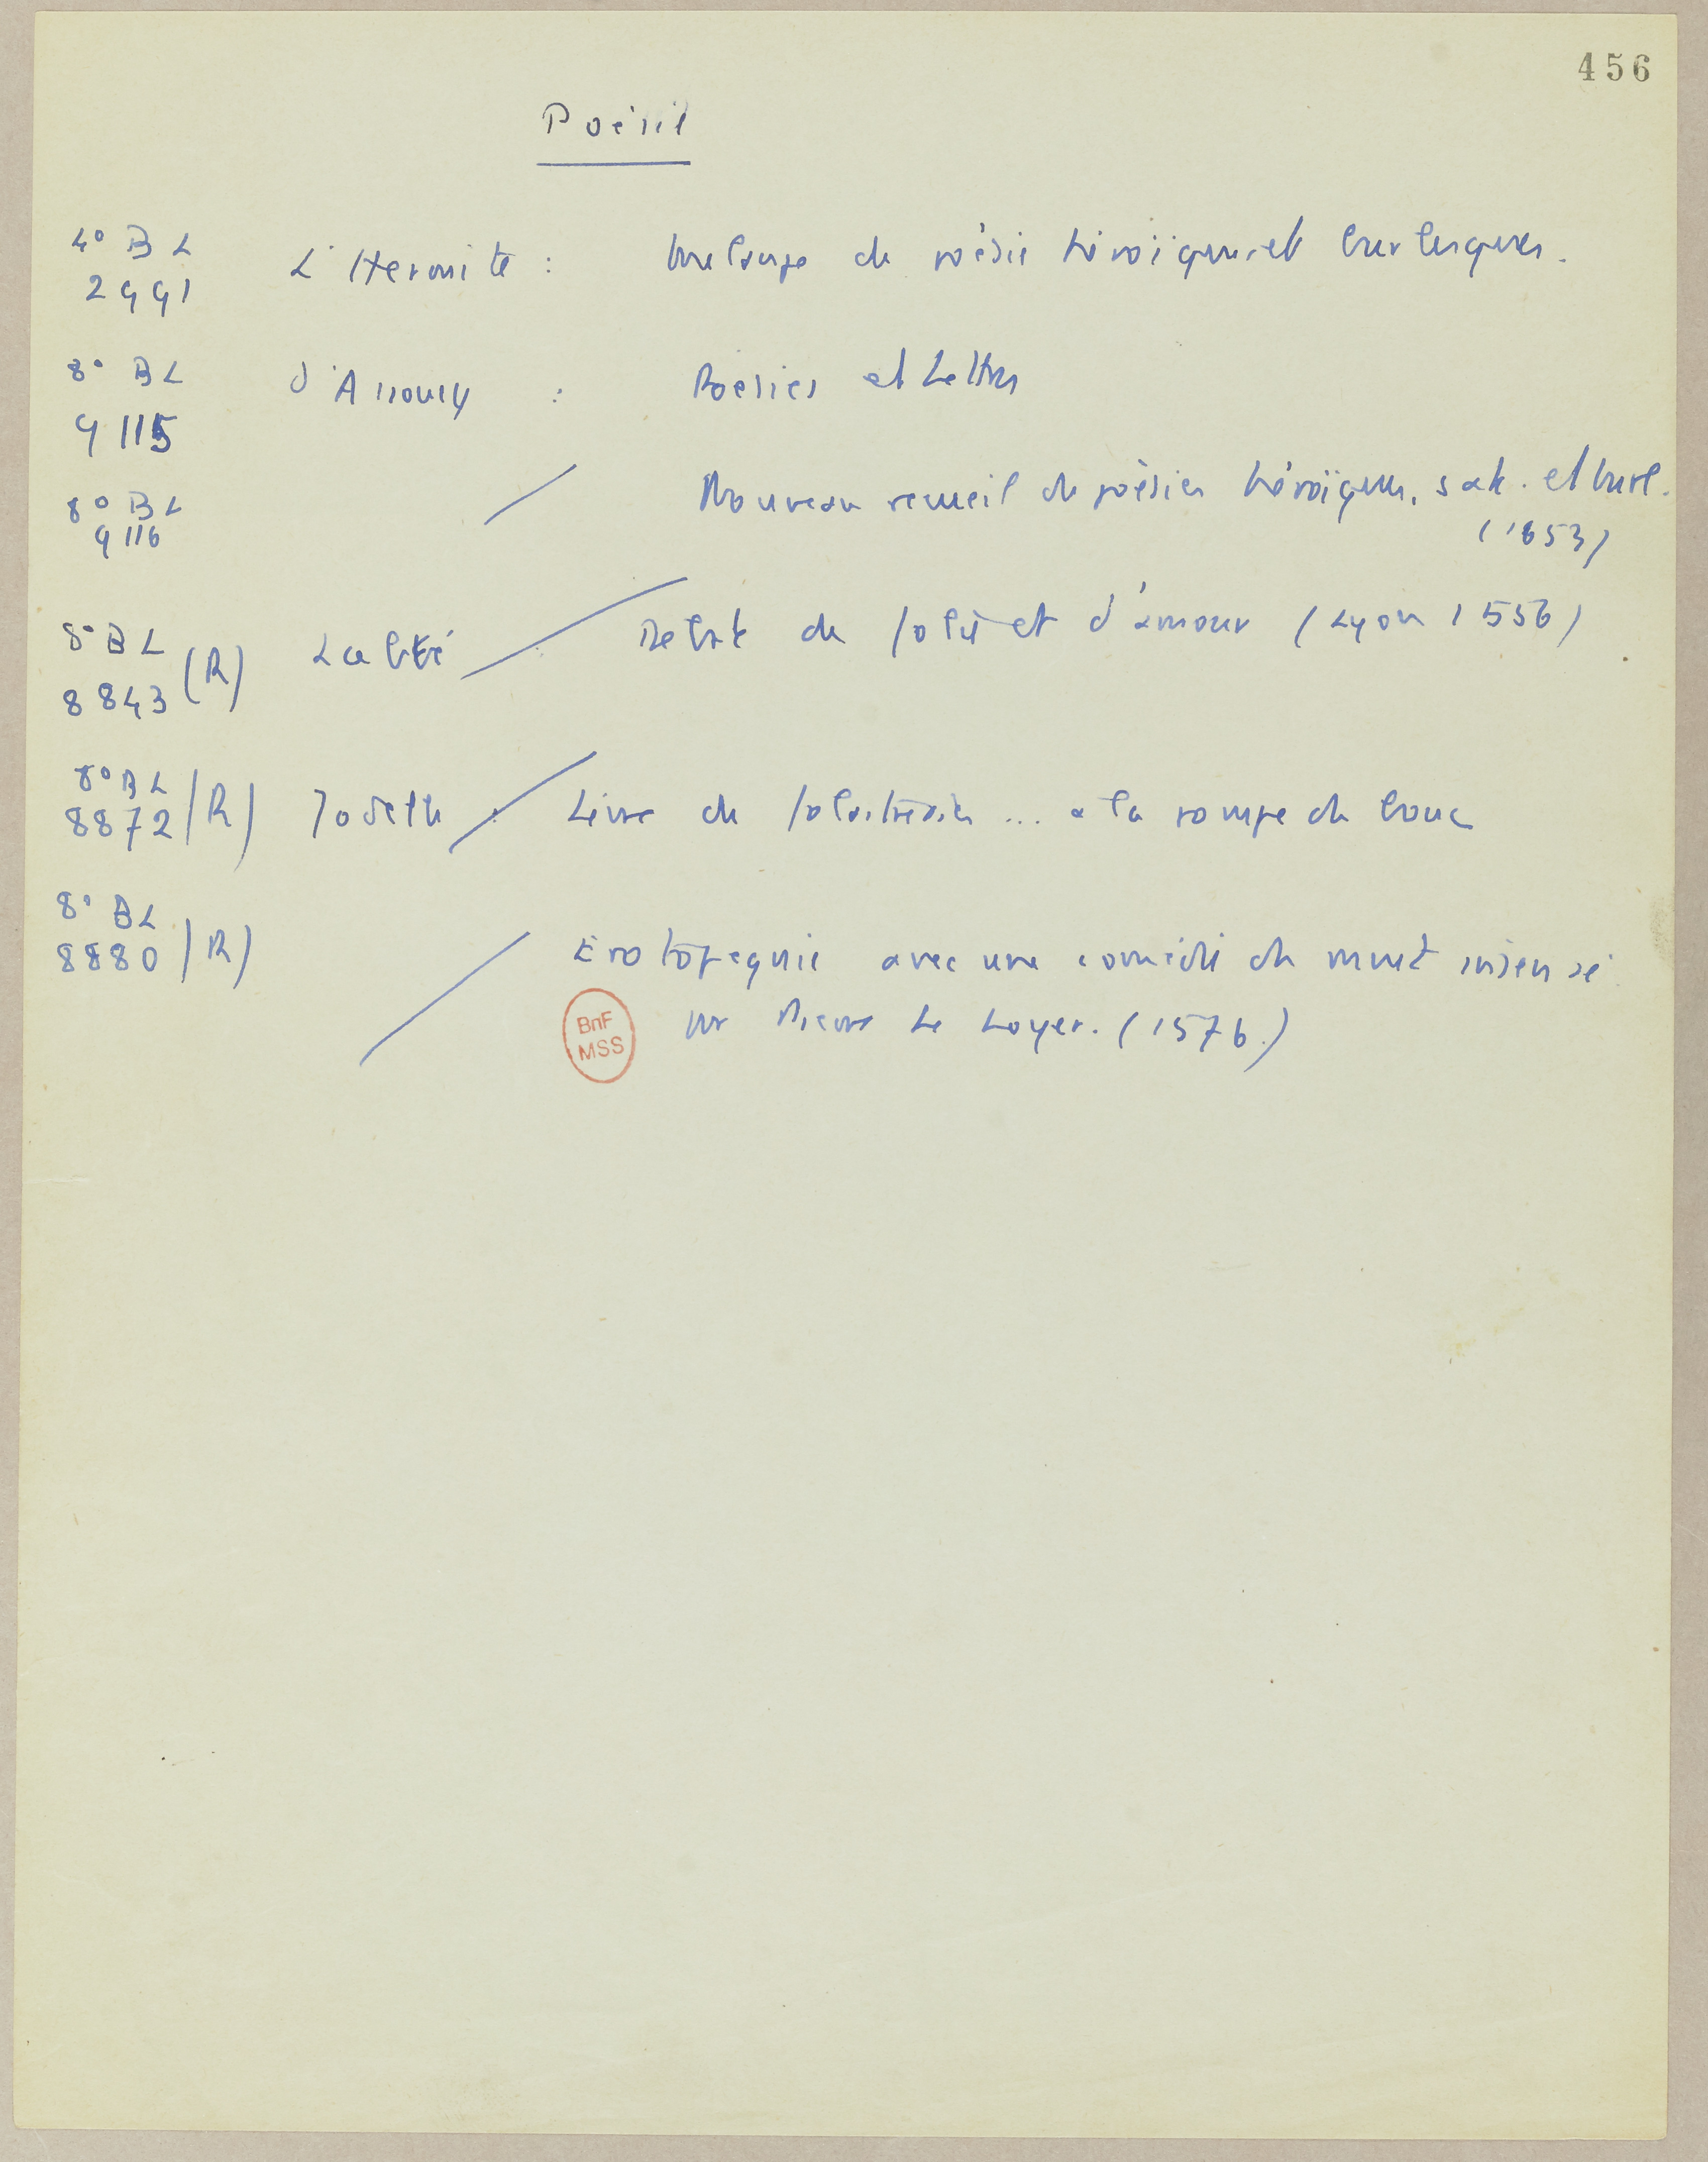 456
Poésie
4° BL
2991
L'Hermite : Melange de poésie héroïques et burlesques.
8° BL
9115
d'Assoucy : Poesies et Lettres
8° BL
9116
Nouveau recueil de poésies héroïques, sat. et burl.
(1653)
8° BL
8843 (R)
Labbé Debat de folie et d'amour (Lyon 1556)
8° BL
8872 (R)
Jodelle : Livre de folastries ... a la pompe du bouc
8° BL
8880 (R)
Erotopegnie avec une comédie du muet insensé
par Pierre Le Loyer. (1576.)
BnF
MSS